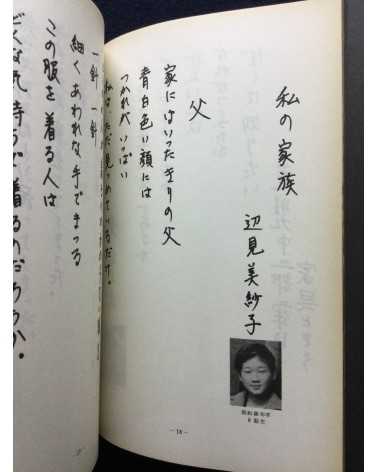 私の家族
辺見美紗子
父
家にはいったきりの父
青白色い顔には
つかれがいっぱい
私は、ただ見つめているだけ。
一針一針
細くあわれな手でまつる
この服を着る人は
どんな気持ちで着るのだろうか。
— 18 —